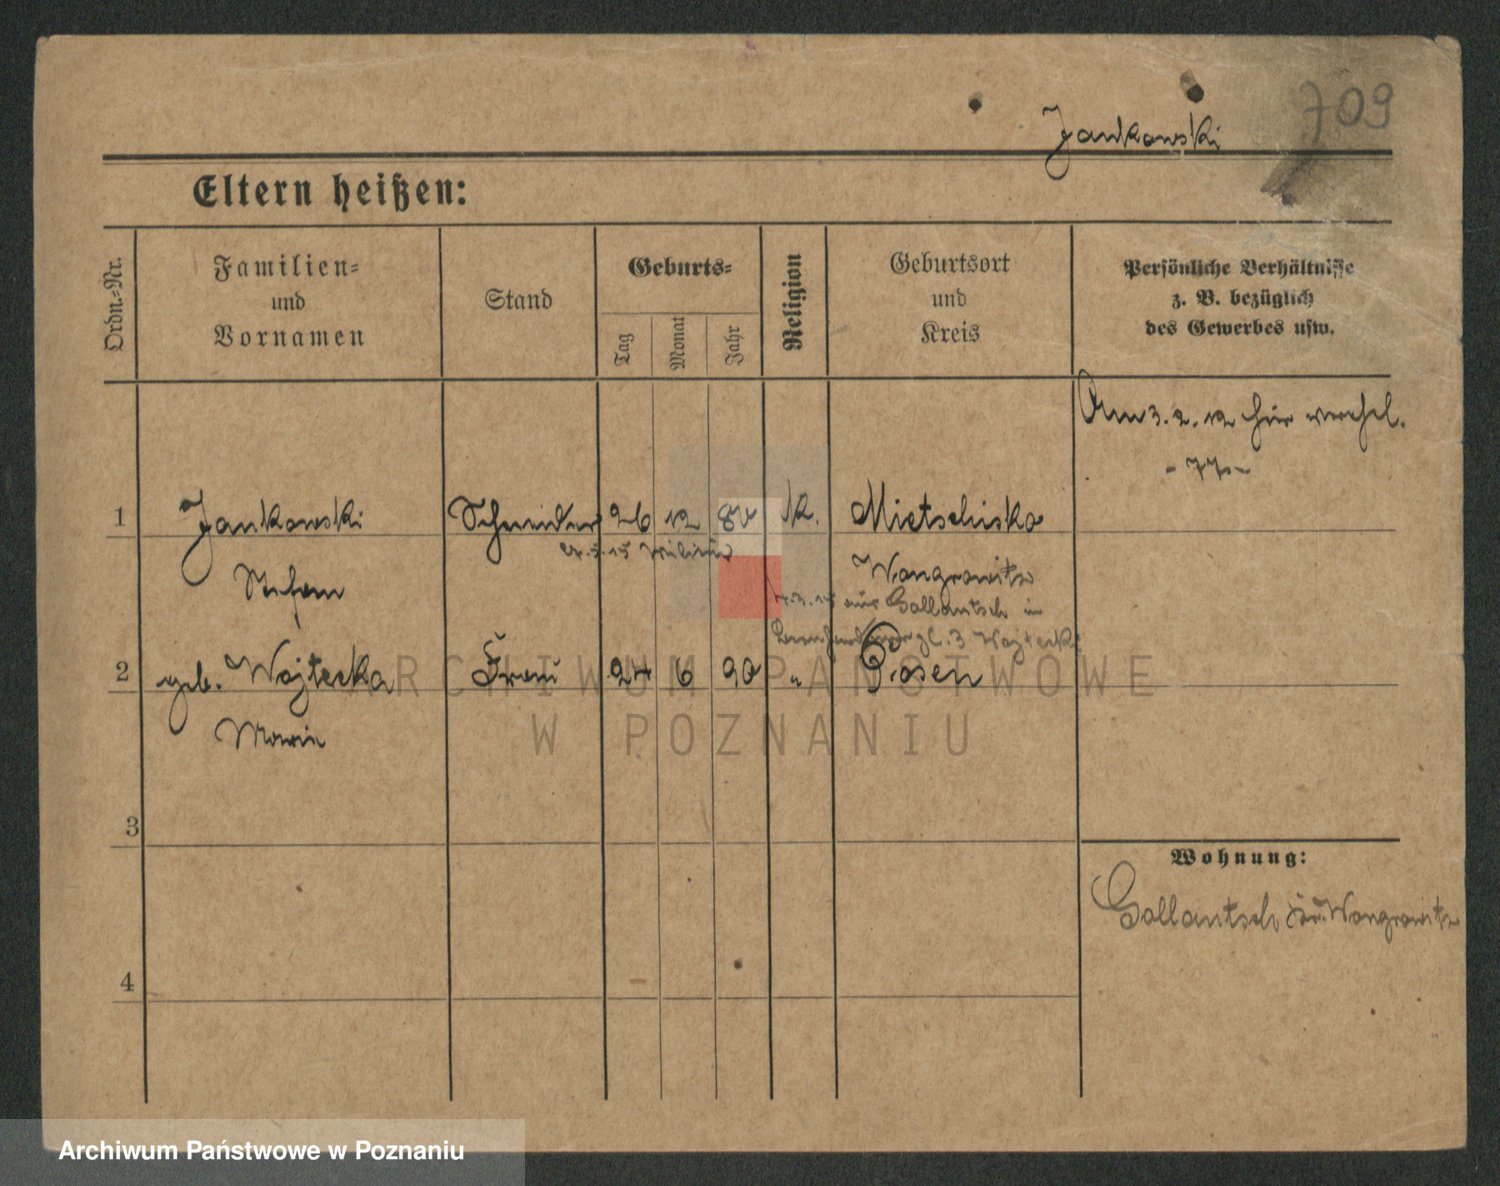 709
Jankowski
Eltern heißen:
Ordn.-Nr.
Familien-
und
Vornamen
Stand
Geburts-
Tag
Monat
Jahr
Religion
Geburtsort
und
Kreis
Persönliche Verhältnisse
z. B. bezüglich
des Gewerbes usw.
Am 3. 2. 12 hier verehel.
1 Jankowski Schneider 26 12 80 k. Mietschisko
Militär
Stefan Wongrowitz
aus Gollantsch in
3 Wojtecki
2 geb. Wojtecka Frau 24 6 90 " Posen
Maria
3
4
Wohnung:
Gollantsch Kr. Wongrowitz
ARCHIWUM PAŃSTWOWE
W POZNANIU
Archiwum Państwowe w Poznaniu